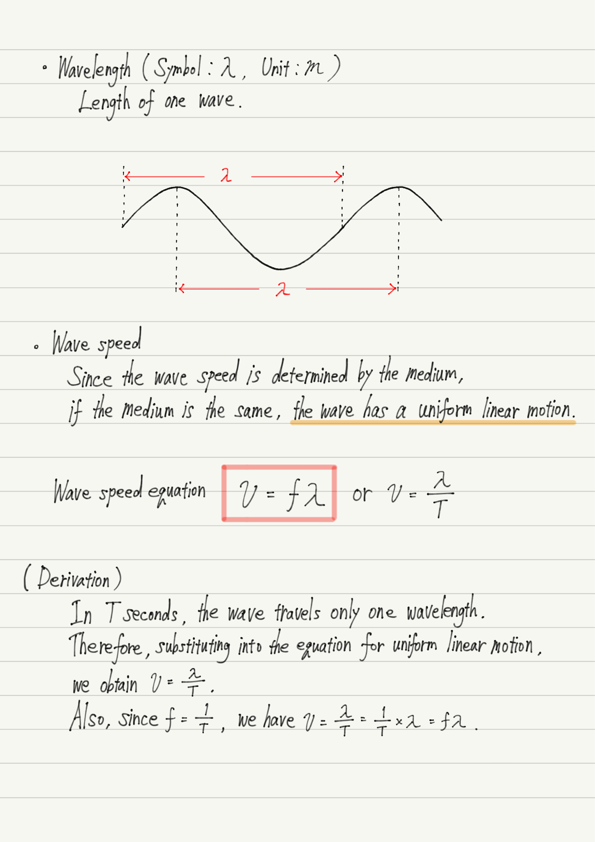 • Wavelength (Symbol : λ, Unit : m)
Length of one wave.
λ
λ
• Wave speed
Since the wave speed is determined by the medium,
if the medium is the same, the wave has a uniform linear motion.
Wave speed equation v = fλ or v = λ/T
(Derivation)
In T seconds, the wave travels only one wavelength.
Therefore, substituting into the equation for uniform linear motion,
we obtain v = λ/T.
Also, since f = 1/T, we have v = λ/T = 1/T × λ = fλ.